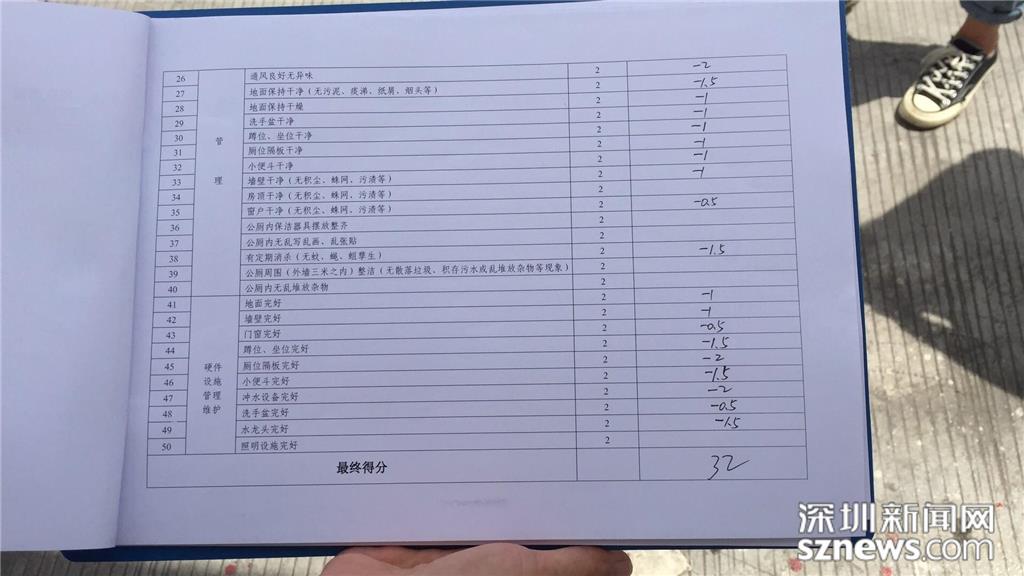 26 通风良好无异味 2 -2
27 地面保持干净（无污泥、痰涕、纸屑、烟头等） 2 -1.5
28 地面保持干燥 2 -1
29 洗手盆干净 2 -1
30 管 蹲位、坐位干净 2 -1
31 厕位隔板干净 2 -1
32 小便斗干净 2 -1
33 理 墙壁干净（无积尘、蛛网、污渍等） 2 -1
34 房顶干净（无积尘、蛛网、污渍等） 2
35 窗户干净（无积尘、蛛网、污渍等） 2 -0.5
36 公厕内保洁器具摆放整齐 2
37 公厕内无乱写乱画、乱张贴 2
38 有定期消杀（无蚊、蝇、蛆孳生） 2 -1.5
39 公厕周围（外墙三米之内）整洁（无散落垃圾、积存污水或乱堆放杂物等现象） 2
40 公厕内无乱堆放杂物 2
41 地面完好 2 -1
42 墙壁完好 2 -1
43 门窗完好 2 -0.5
44 蹲位、坐位完好 2 -1.5
45 硬件 厕位隔板完好 2 -2
46 设施 小便斗完好 2 -1.5
47 管理 冲水设备完好 2 -2
48 维护 洗手盆完好 2 -0.5
49 水龙头完好 2 -1.5
50 照明设施完好 2
最终得分 32
深圳新闻网
sznews.com